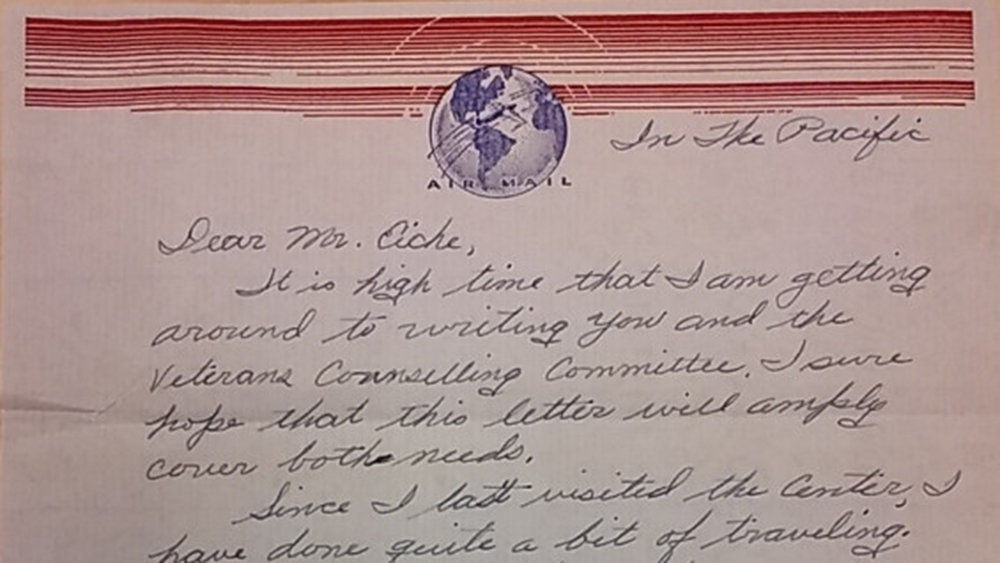 In The Pacific
AIR MAIL
Dear Mr. Eiche,
It is high time that I am getting
around to writing you and the
Veterans Counselling Committee. I sure
hope that this letter will amply
cover both needs.
Since I last visited the Center, I
have done quite a bit of traveling.